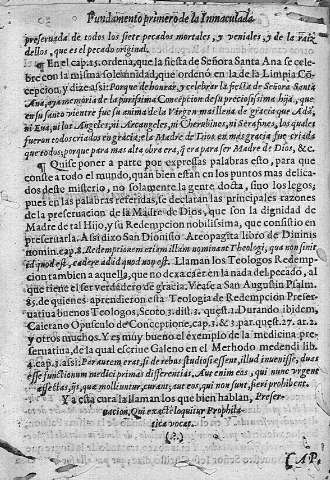 Fundamento primero de la Inmaculada
preseruada de todos los siete pecados mortales, y veniales, y de la raiz
dellos, que es el pecado original.
¶ En el cap.15. ordena, que la fiesta de Señora Santa Ana se cele-
bre con la misma solennidad, que ordenó en la de la Limpia Cõce-
pcion, y dize assi: Porque de honrar, y celebrar la fiesta de Señora Santa
Ana, ay memoria de la purissima Concepcion de su preciosissima hija, que
en su santo vientre fue su anima de la Virgen mas llena de gracia que Adã,
ni Eua, ni los Angeles, ni Arcangeles, ni Cherubines, ni Serafines, los quales
fueron todos criados en gracia; e la Madre de Dios en mas gracia fue criada
que todos; porque para mas alta obra era, q̃ era para ser Madre de Dios, &c.
¶ Quise poner a parte por expressas palabras esto, para que
conste a todo el mundo, quan bien estan en los puntos mas delica-
dos deste misterio, no solamente la gente docta, sino los legos;
pues en las palabras referidas, se declaran las principales razones
de la preseruacion de la Madre de Dios, que son la dignidad de
Madre de tal Hijo, y su Redempcion nobilissima, que consistio en
preseruarla. Assi dixo San Dionisio Areopagita libro de Diuinis
nomin. cap.8. Redemptionem etiam illam nominant Theologi, qua non sinit
id quod est, cadere ad id quod non est. Llaman los Teologos Redemp-
cion tambien a aquella, que no dexa caer en la nada del pecado, al
que tiene el ser verdadero de gracia. Vease a San Augustin Psalm.
85. de quienes aprendieron esta Teologia de Redempcion Preser-
uatiua buenos Teologos, Scoto 3. dist.2. quest.1. Durando ibidem,
Caietano Opusculo de Conceptione, cap.1. & 3. par. quest.27. ar.2.
y otros muchos. Y es muy bueno el exemplo de la medicina pre-
seruatiua, de la qual escriue Galeno en el Methodo medendi lib.
4. cap.1. assi: Par autem erat, si de rebus studiosi essent, illud inuenisse, duas
esse functionum medici primas differentias. Aut enim eos, qui nunc vrgent
affectus, ijs, quæ molliuntur, curant; aut eos, qui non sunt, fieri prohibent.
Y a esta cura la llaman los que bien hablan, Preser-
uacion, Qui exactè loquitur Prophila-
ctica vocat.
CAP.